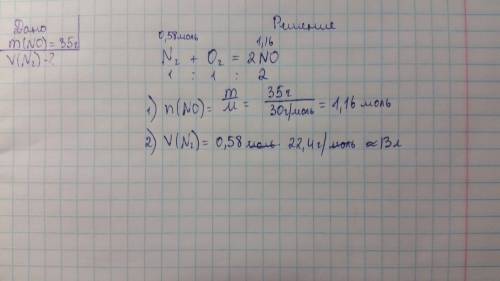 Дано
m(NO)=35г
V(N₂)-?
Решение
0,58моль 1,16
N₂ + O₂ = 2NO
1 : 1 : 2
1) n(NO)= m/M = 35г/30г/моль = 1,16 моль
2) V(N₂)= 0,58 моль · 22,4г/моль ≈13л